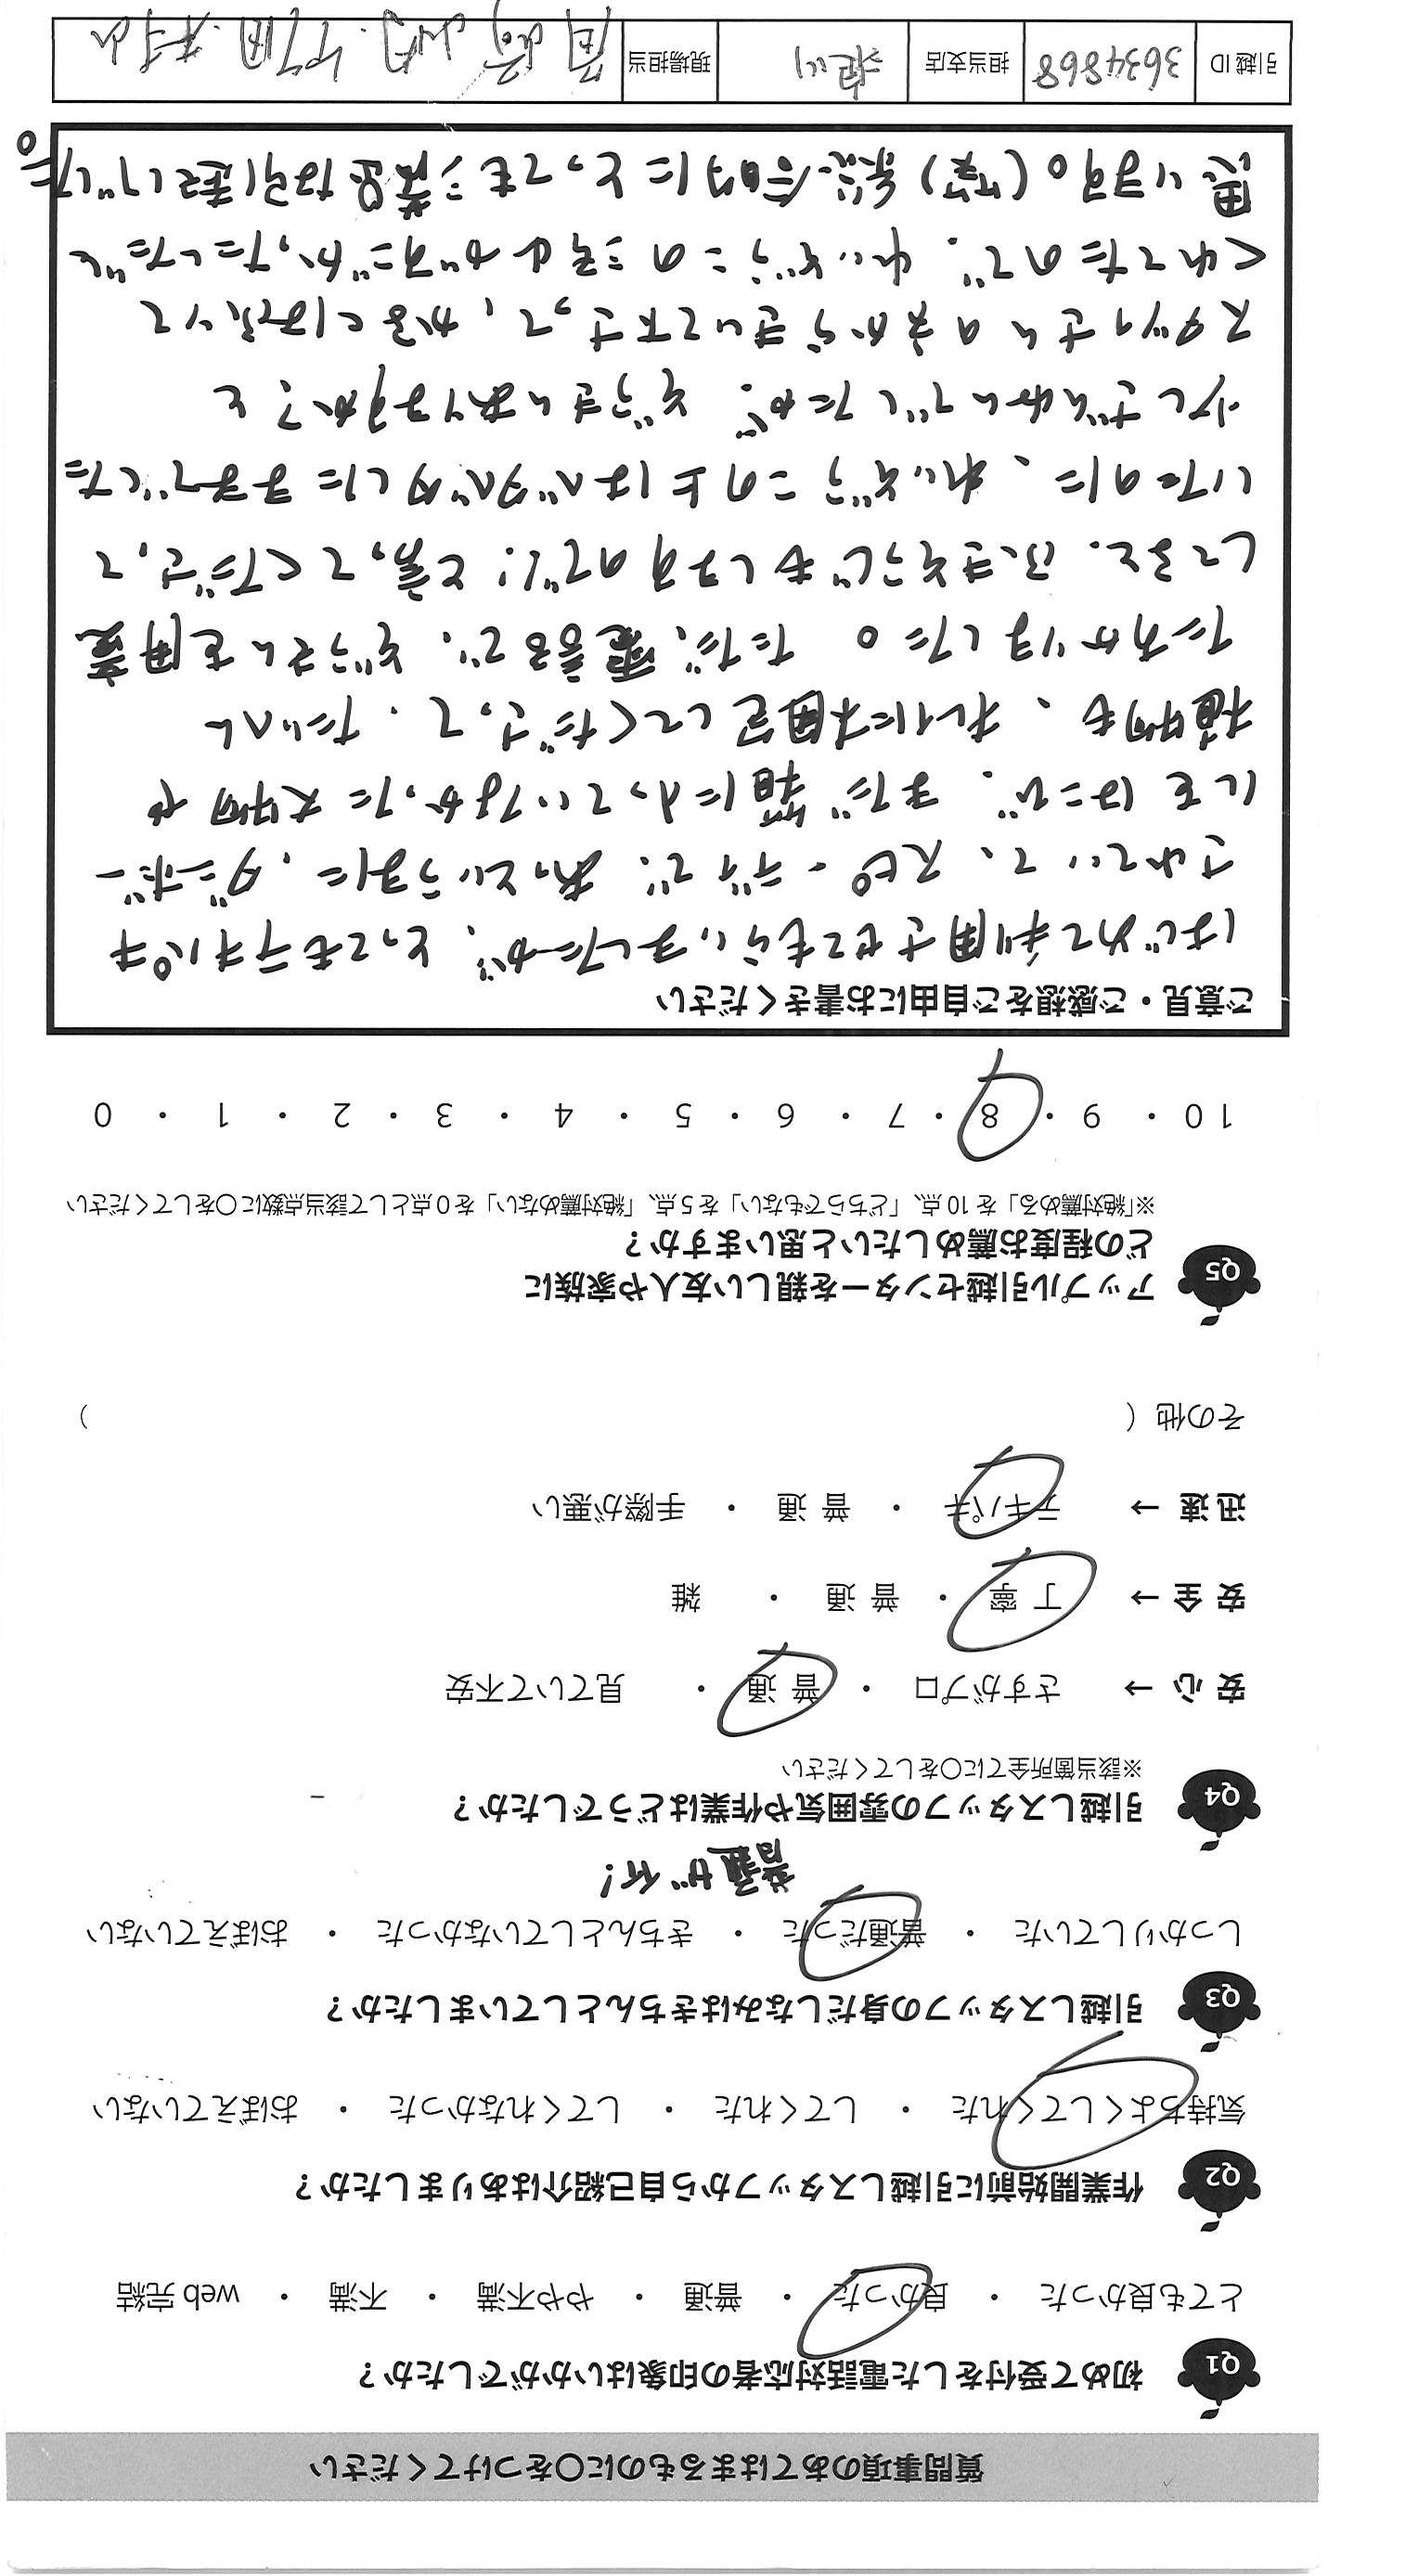 質問事項のあてはまるものに○をつけてください
Q1 初めて受付をした電話対応者の印象はいかがでしたか？
とても良かった ・ 良かった ・ 普通 ・ やや不満 ・ 不満 ・ web 完結
Q2 作業開始前に引越しスタッフから自己紹介はありましたか？
気持ちよくしてくれた ・ してくれた ・ してくれなかった ・ おぼえていない
Q3 引越しスタッフの身だしなみはきちんとしていましたか？
しっかりしていた ・ 普通だった ・ きちんとしていなかった ・ おぼえていない
普通が1個！
Q4 引越しスタッフの雰囲気や作業はどうでしたか？
※該当箇所全てに○をしてください
安 心 → さすがプロ ・ 普 通 ・ 見ていて不安
安 全 → 丁 寧 ・ 普 通 ・ 雑
迅 速 → テキパキ ・ 普 通 ・ 手際が悪い
その他（ ）
Q5 アップル引越センターを親しい友人や家族に
どの程度お薦めしたいと思いますか？
※「絶対薦める」を 10 点、「どちらでもない」を 5 点、「絶対薦めない」を 0 点として該当点数に○をしてください
10 ・ 9 ・ 8 ・ 7 ・ 6 ・ 5 ・ 4 ・ 3 ・ 2 ・ 1 ・ 0
ご意見・ご感想をご自由にお書きください
はじめて利用させてもらいましたが、とってもテキパキ
されていて、スピーディで、あっというまに、ダンボー
ルをはこび、まだ箱に入っていなかった大物や
植物も、キレイに固定してくださって、たいへん
たすかりました。ただ、電話で、ぞうきんを用意
してると、ふきそうじもしますので！と言ってくださって
いたのに、れいぞうこの上はベタベタしたままでした
少しざんねんでしたが、ぞうきんありますか？と
スタッフさんの方からきいて下さって、かるくはふいて
くれてたので、れいぞうこのみおがすごかったんだと
思います。(笑) 総合的にとっても満足な引越しでした。
引越 ID 3634868 担当支店 現場担当